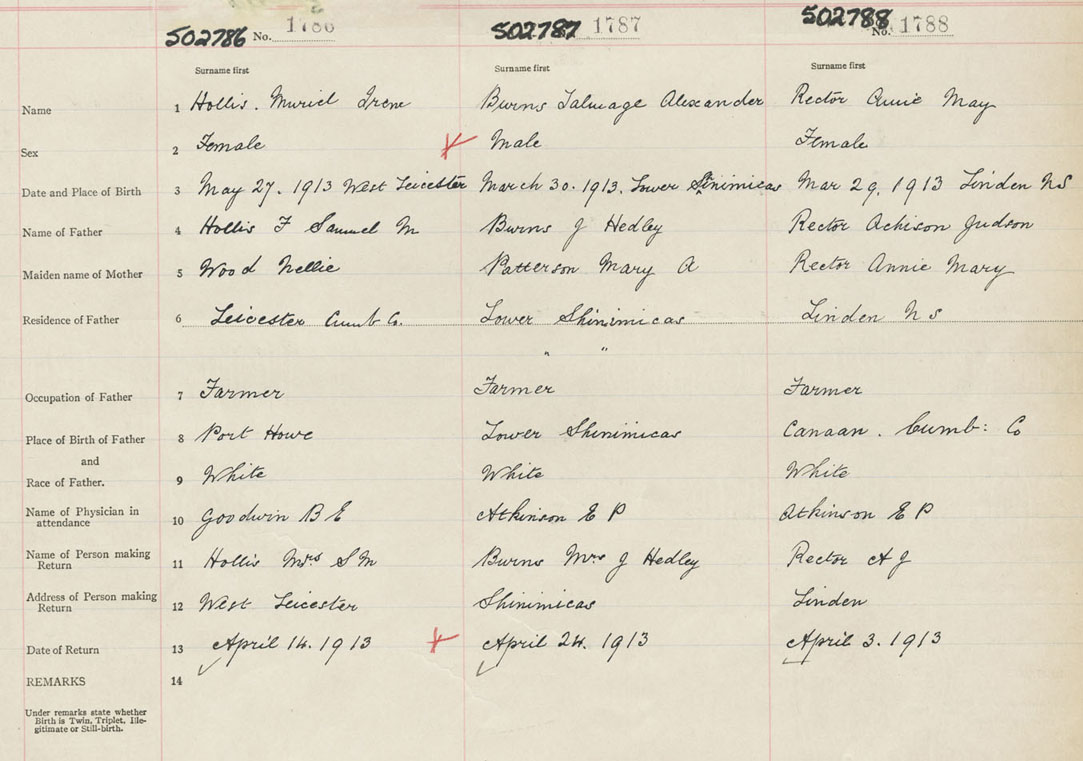 502786 No. 1786 502787 1787 502788 No. 1788
Surname first Surname first Surname first
Name 1 Hollis. Muriel Irene Burns Talmage Alexander Rector Annie May
Sex 2 Female Male Female
Date and Place of Birth 3 May 27. 1913 West Leicester March 30. 1913. Lower Shinimicas Mar 29. 1913 Linden NS
Name of Father 4 Hollis F Samuel M Burns J Hedley Rector Achison Judson
Maiden name of Mother 5 Wood Nellie Patterson Mary A Rector Annie Mary
Residence of Father 6 Leicester Cumb Co. Lower Shinimicas Linden NS
" "
Occupation of Father 7 Farmer Farmer Farmer
Place of Birth of Father 8 Port Howe Lower Shinimicas Canaan. Cumb: Co
and
Race of Father. 9 White White White
Name of Physician in
attendance 10 Goodwin B E Atkinson E P Atkinson E P
Name of Person making
Return 11 Hollis Mrs S M Burns Mrs J Hedley Rector A J
Address of Person making
Return 12 West Leicester Shinimicas Linden
Date of Return 13 April 14. 1913 April 24. 1913 April 3. 1913
REMARKS 14
Under remarks state whether
Birth is Twin, Triplet, Ille-
gitimate or Still-birth.